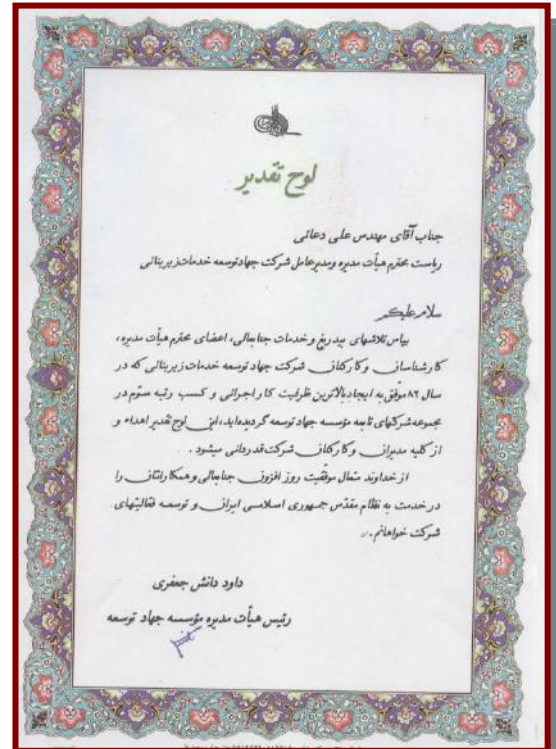 لوح تقدیر
جناب آقای مهندس علی دعائی
ریاست محترم هیأت مدیره ومدیرعامل شرکت جهادتوسعه خدمات زیربنائی
سلام علیکم
بپاس تلاشهای بیدریغ و خدمات جنابعالی، اعضای محترم هیأت مدیره،
کارشناسان وکارکنان شرکت جهاد توسعه خدمات زیربنائی که در
سال ۸۲ موفق به ایجاد بالاترین ظرفیت کار اجرائی و کسب رتبه سوم در
مجموعه شرکتهای تابعه مؤسسه جهاد توسعه گردیده‌اید، این لوح تقدیر اهداء و
از کلیه مدیران وکارکنان شرکت قدردانی میشود.
از خداوند متعال موفقیت روز افزون جنابعالی وهمکارانتان را
در خدمت به نظام مقدس جمهوری اسلامی ایران و توسعه فعالیتهای
شرکت خواهانم.
داود دانش جعفری
رئیس هیأت مدیره مؤسسه جهاد توسعه